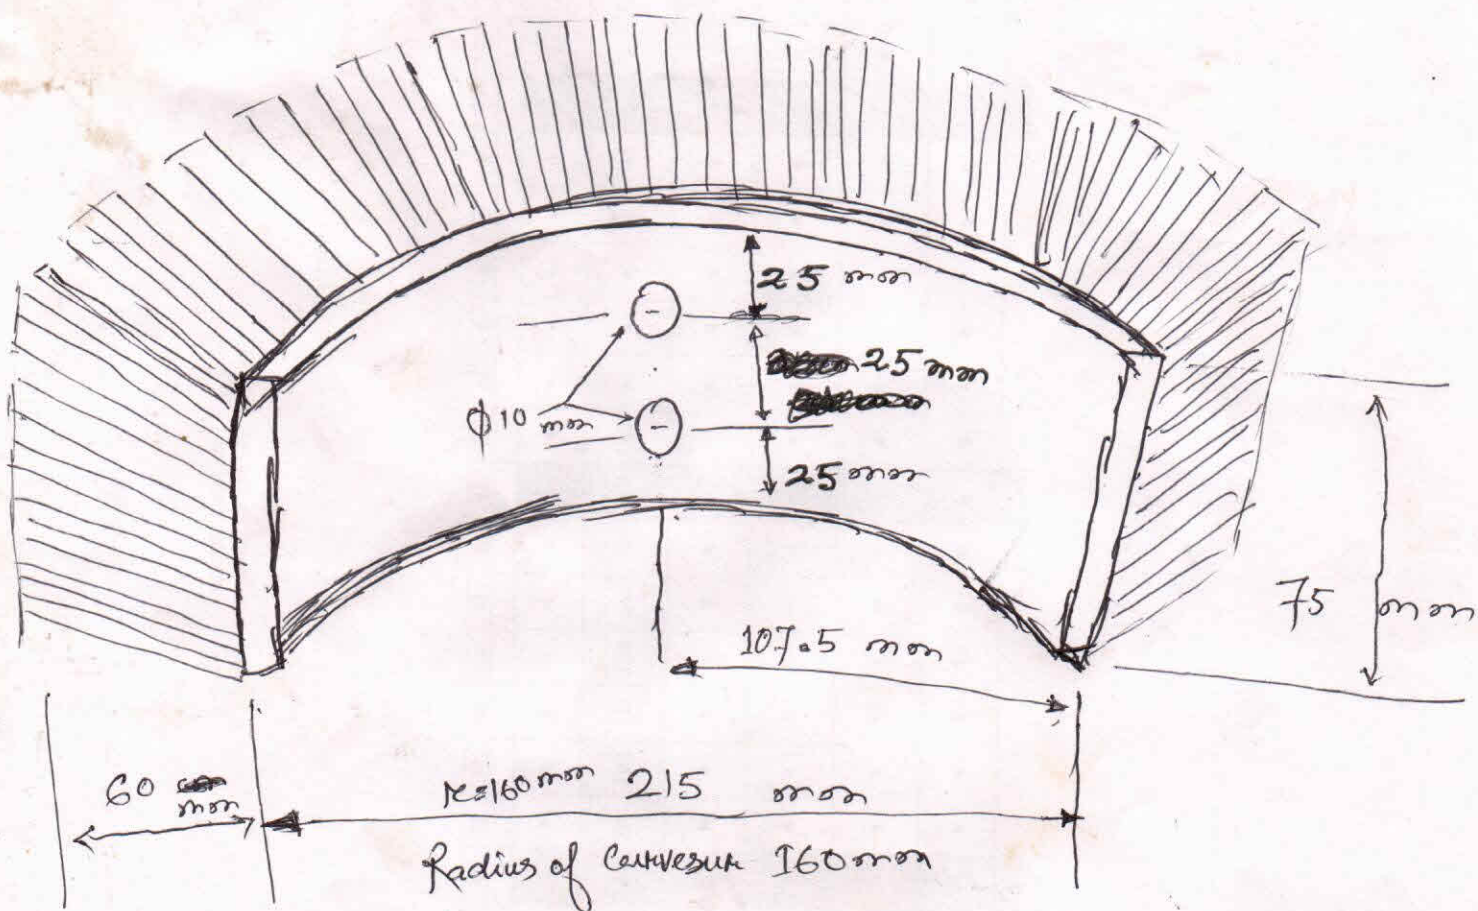 25 mm
25 mm
φ10 mm
25 mm
75 mm
107.5 mm
60 mm
r=160mm 215 mm
Radius of Curvesur 160mm